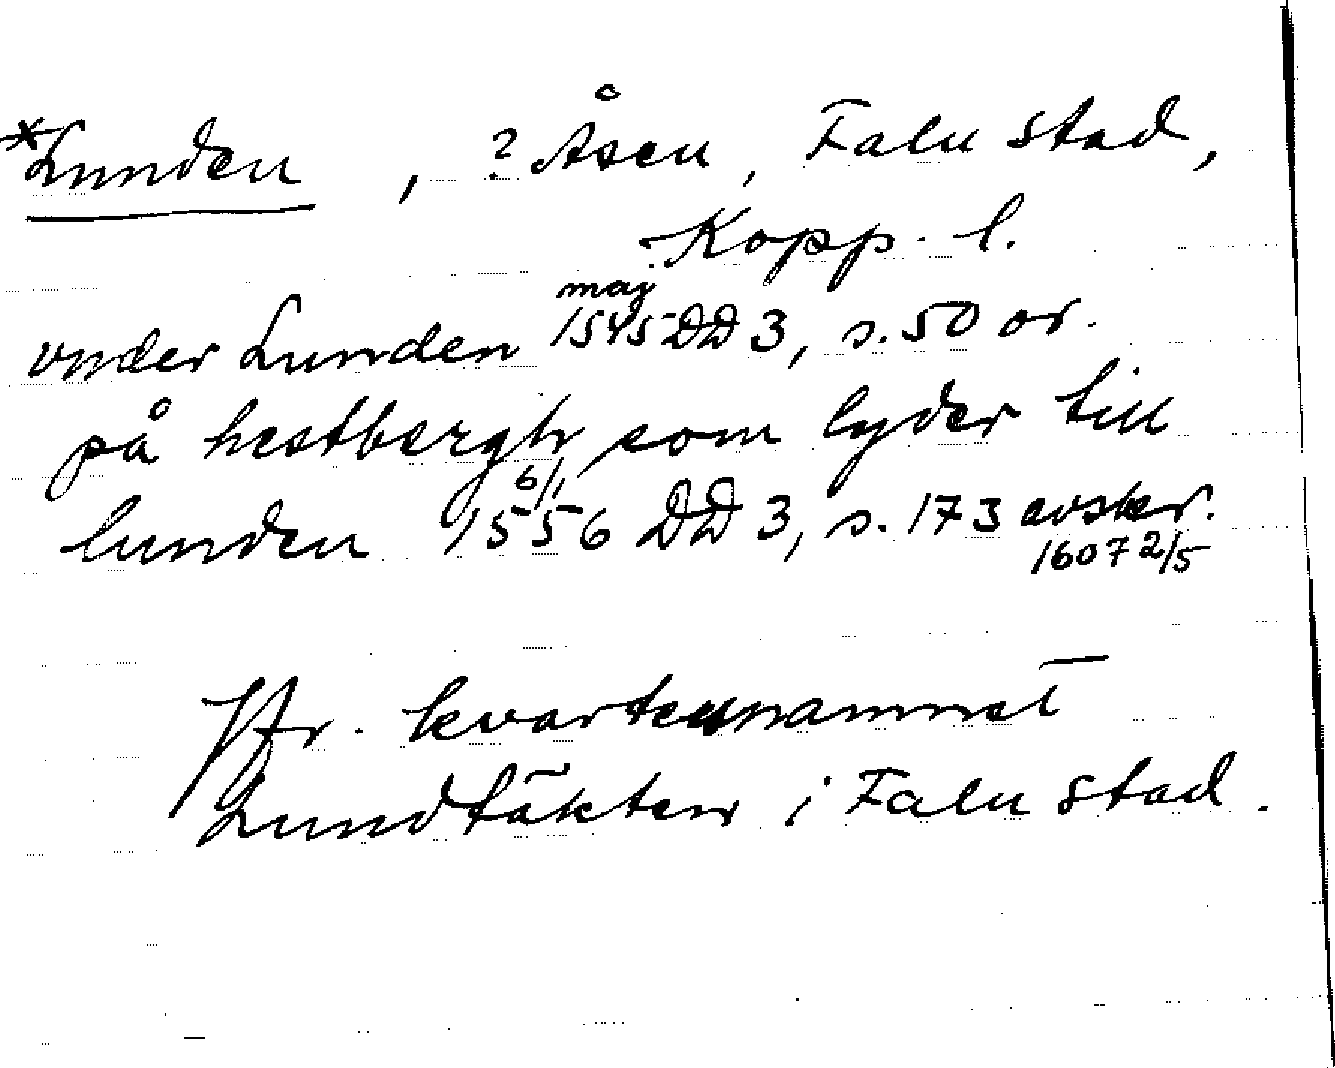 *Lunden, ? Åsen, Falu stad,
Kopp. l.
vnder Lunden may 1545 DD 3, s. 50 or.
på hestbergh som lyder till
lunden 6/1 1556 DD 3, s. 173 avskr.
1607 2/5
Jfr. kvartersnamnet
Lundtäkten i Falu stad.